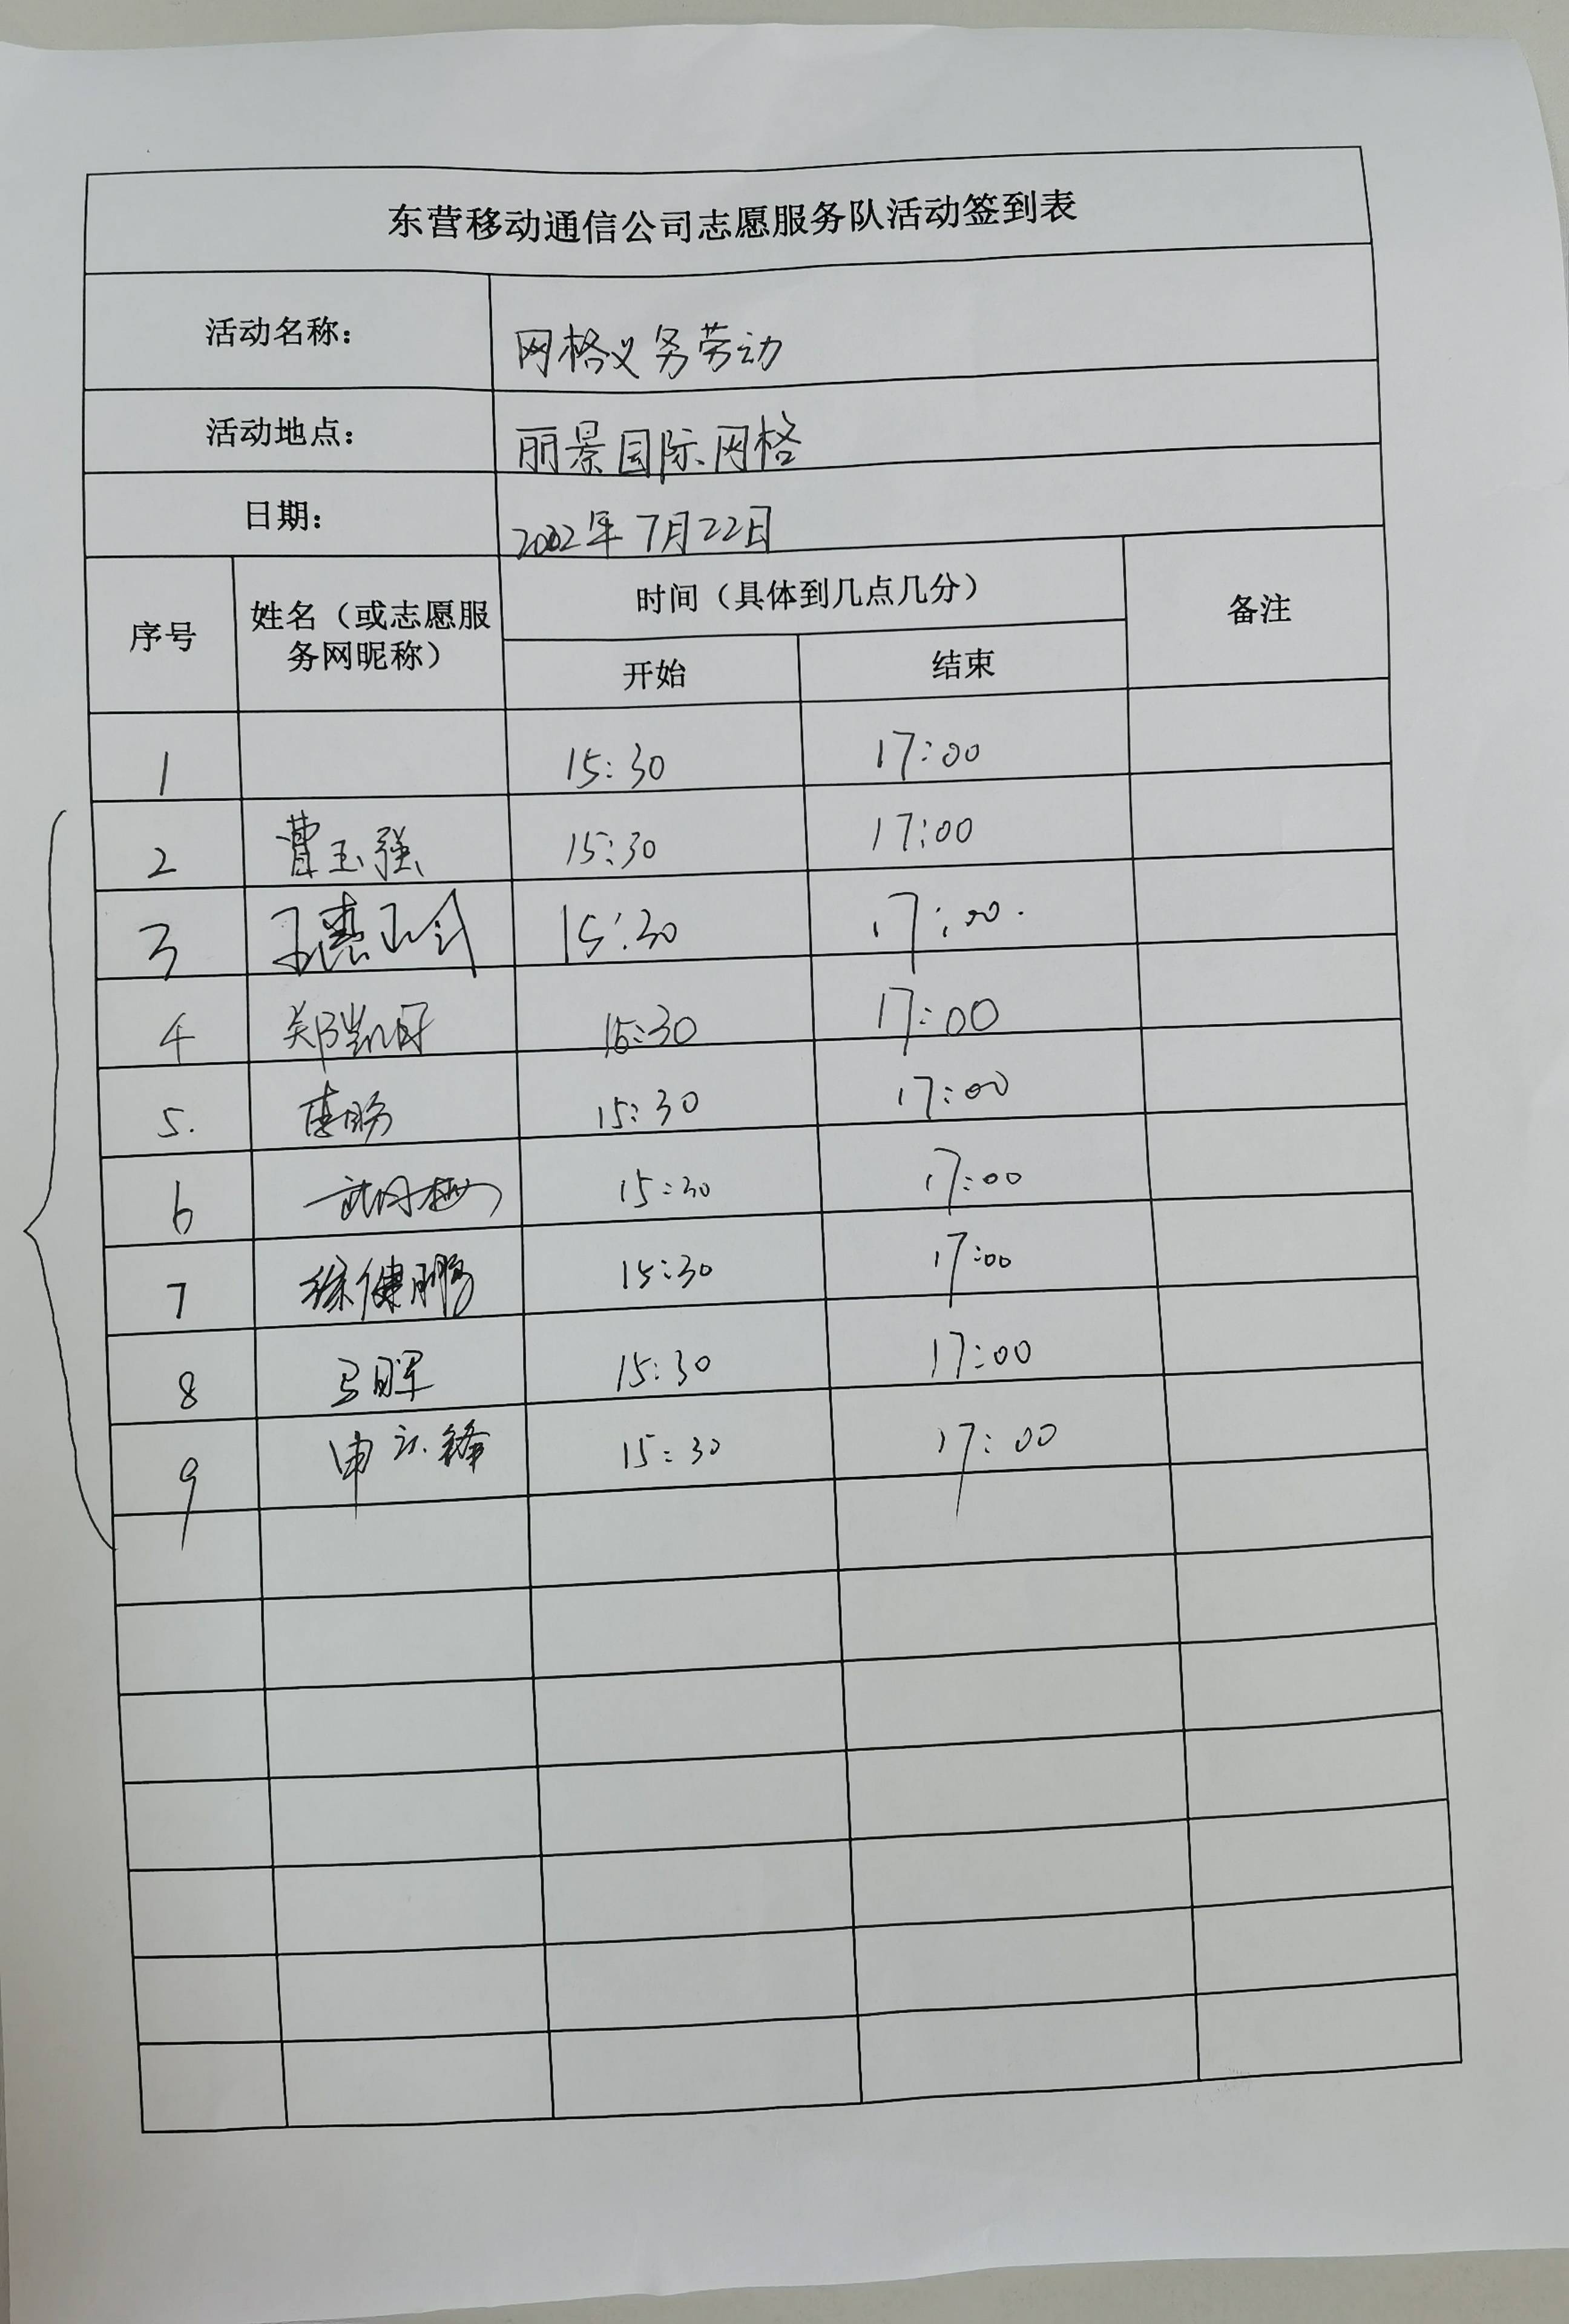 东营移动通信公司志愿服务队活动签到表
活动名称： 网格义务劳动
活动地点： 丽景国际网格
日期： 2022年7月22日
序号 姓名（或志愿服务网昵称） 时间（具体到几点几分） 备注
开始 结束
1 15:30 17:00
2 曹玉强 15:30 17:00
3 王惠玲 15:30 17:00
4 郑凯 15:30 17:00
5. 15:30 17:00
6 15:30 17:00
7 徐健鹏 15:30 17:00
8 马晖 15:30 17:00
9 申 锋 15:30 17:00